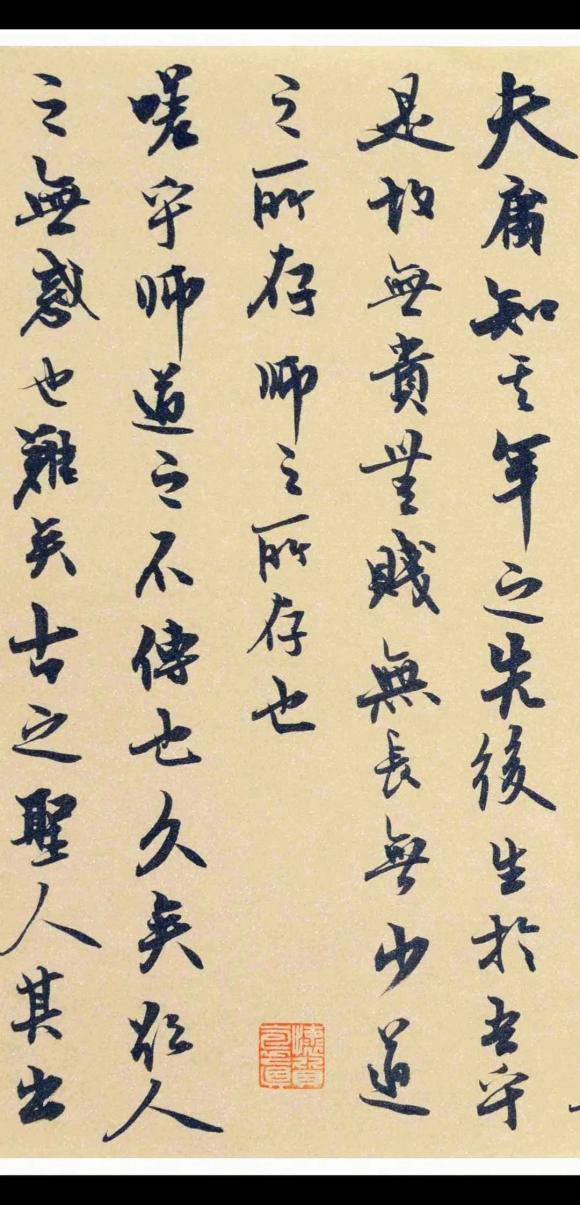 夫庸知其年之先後生於吾乎
是故無貴無賤無長無少道
之所存師之所存也
嗟乎師道之不傳也久矣欲人
之無惑也難矣古之聖人其出